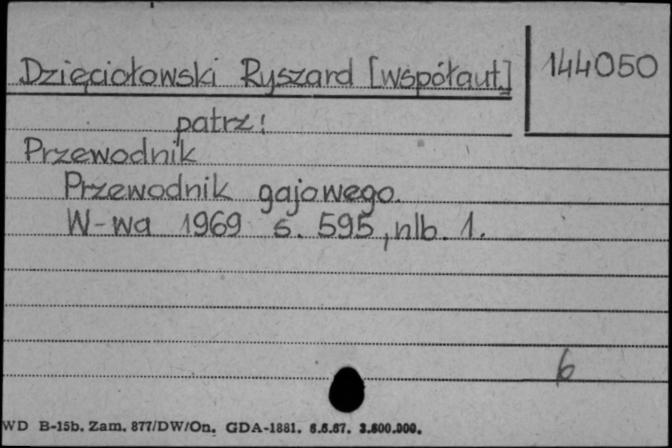 Dzięciołowski Ryszard [współaut.]
144050
patrz:
Przewodnik
Przewodnik gajowego.
W-wa 1969 s. 595, nlb. 1.
6
WD B-15b. Zam. 877/DW/On. GDA-1881. 6.6.67. 3.600.000.